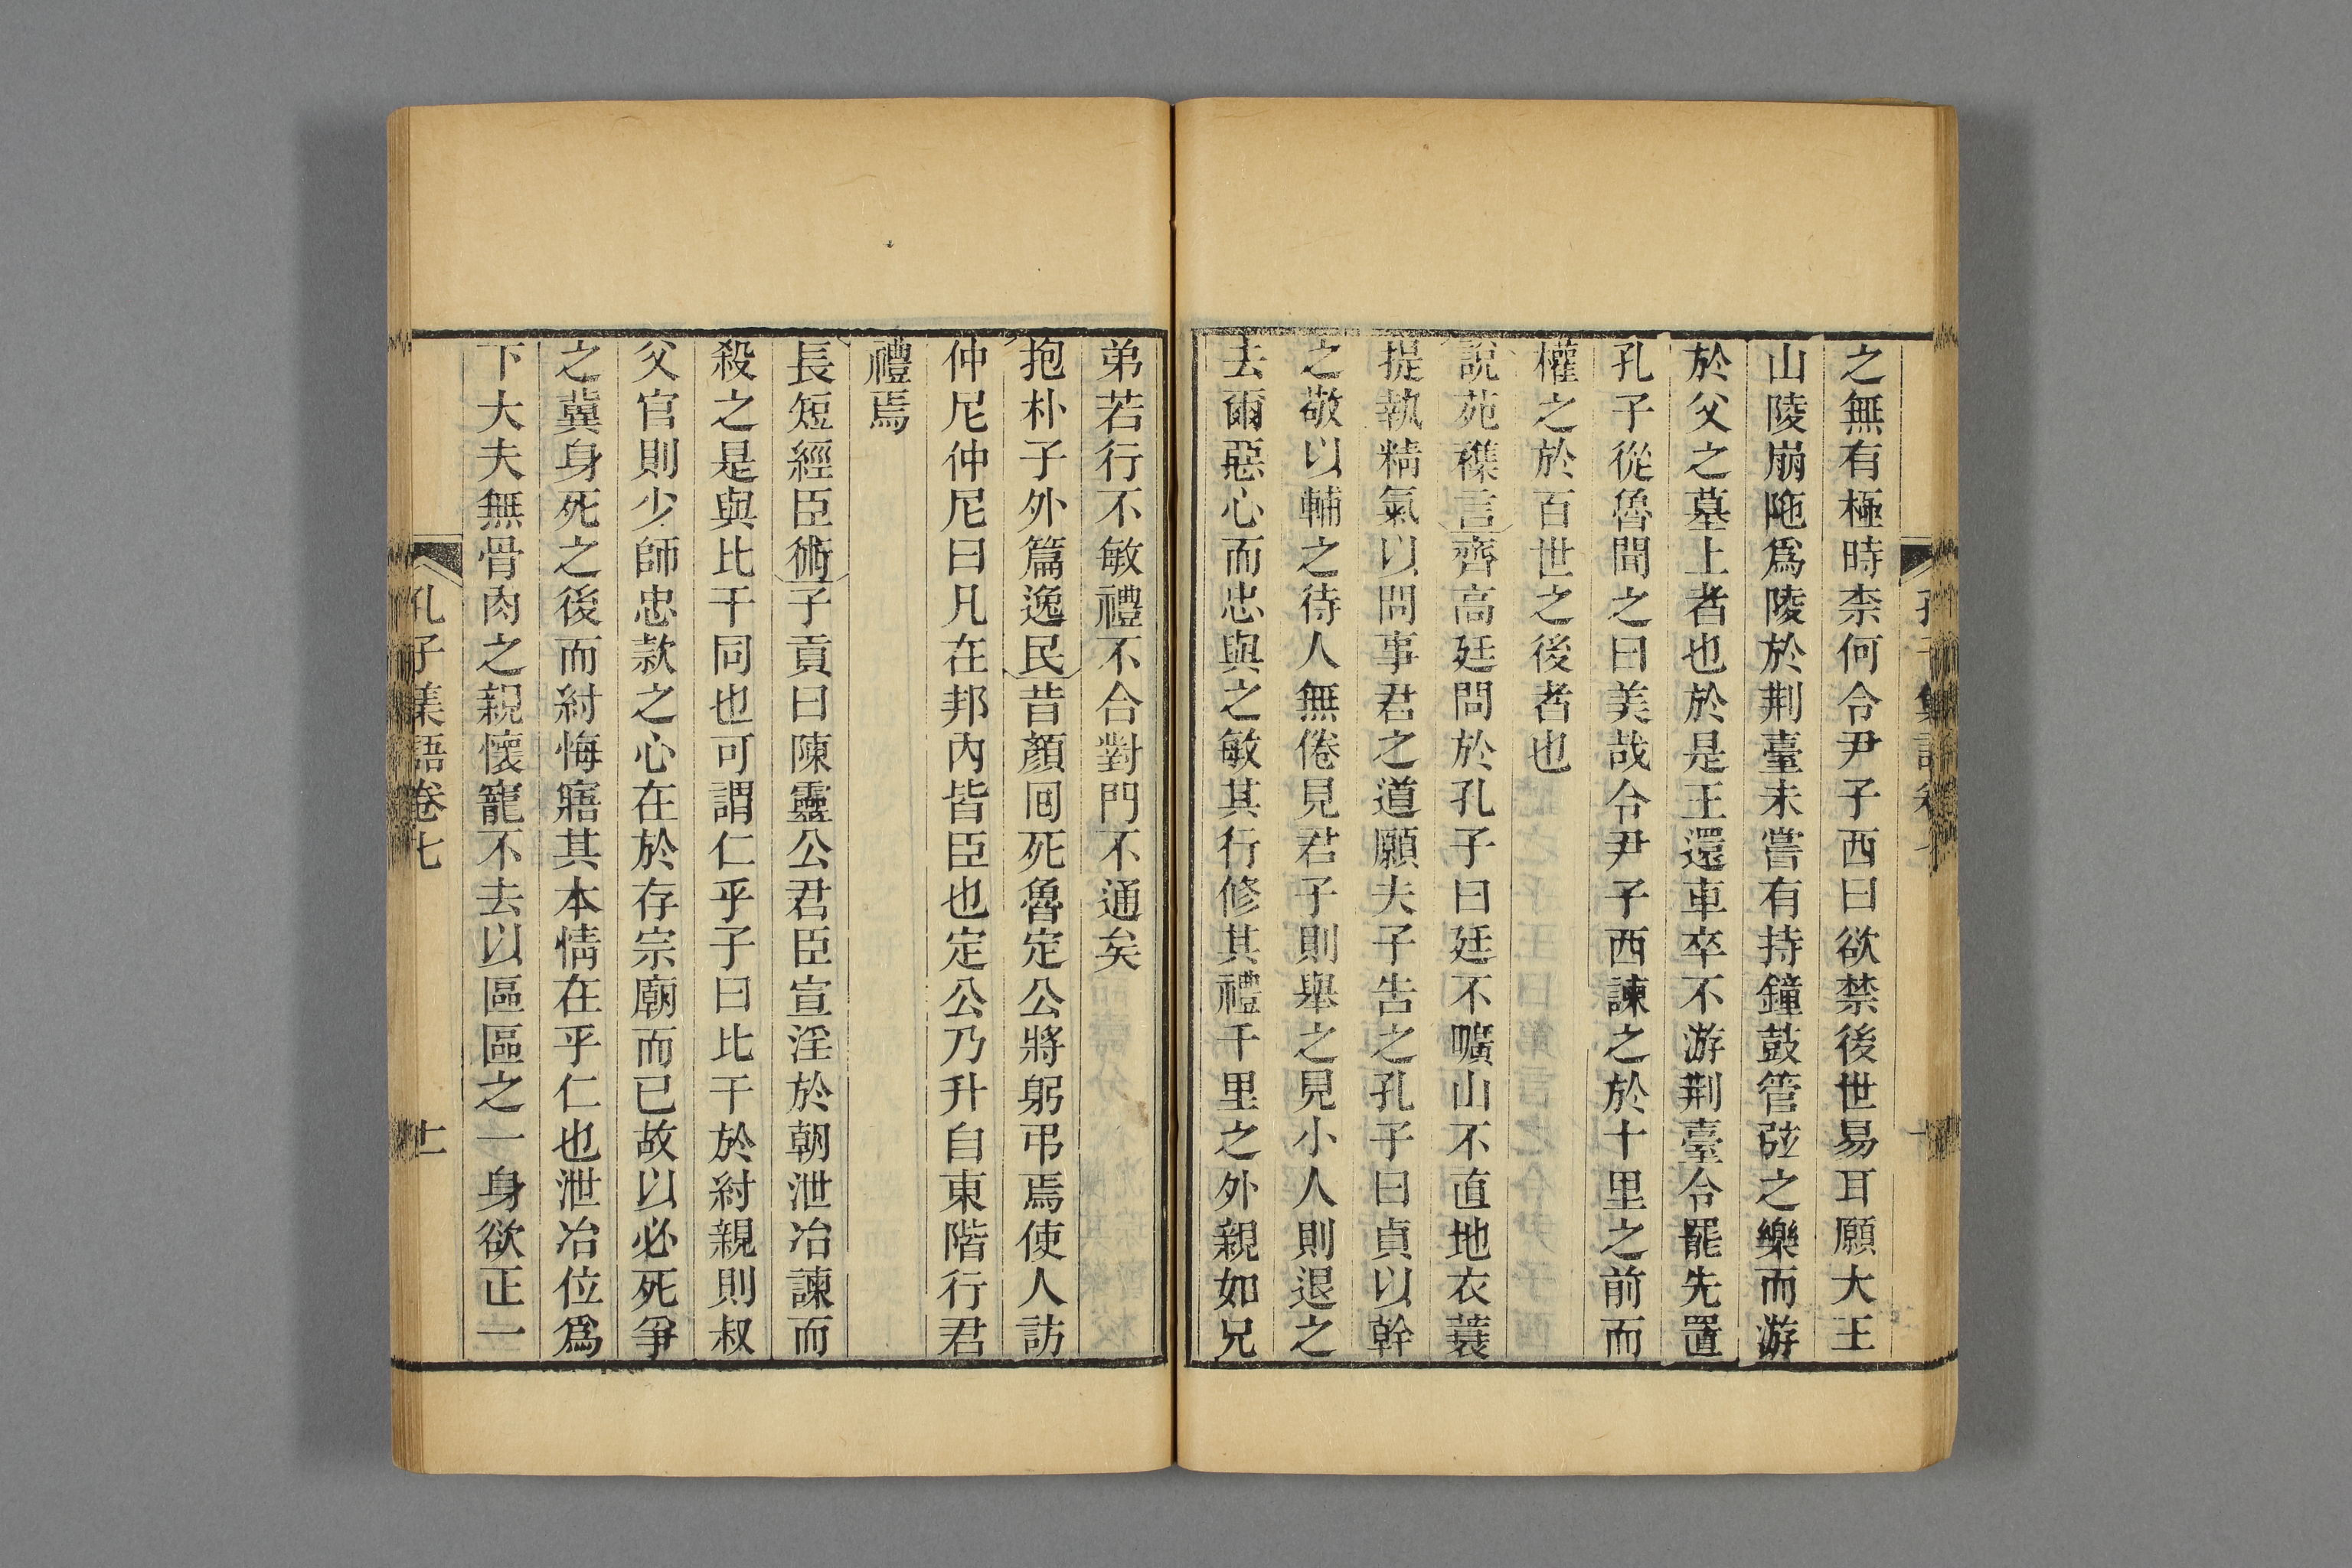 之無有極時柰何令尹子西曰欲禁後世易耳願大王
山陵崩陁爲陵於荆臺未嘗有持鐘鼓管弦之樂而游
於父之墓上者也於是王還車卒不游荆臺令罷先置
孔子從魯聞之曰美哉令尹子西諫之於十里之前而
權之於百世之後者也
說苑襍言齊高廷問於孔子曰廷不曠山不直地衣蓑
提執精氣以問事君之道願夫子告之孔子曰貞以幹
之敬以輔之待人無倦見君子則舉之見小人則退之
去爾惡心而忠與之敏其行修其禮千里之外親如兄
弟若行不敏禮不合對門不通矣
抱朴子外篇逸民昔顏囘死魯定公將躬弔焉使人訪
仲尼仲尼曰凡在邦內皆臣也定公乃升自東階行君
禮焉
長短經臣術子貢曰陳靈公君臣宣淫於朝泄冶諫而
殺之是與比干同也可謂仁乎子曰比干於紂親則叔
父官則少師忠款之心在於存宗廟而已故以必死爭
之冀身死之後而紂悔寤其本情在乎仁也泄冶位爲
下大夫無骨肉之親懷寵不去以區區之一身欲正一
孔子集語卷七